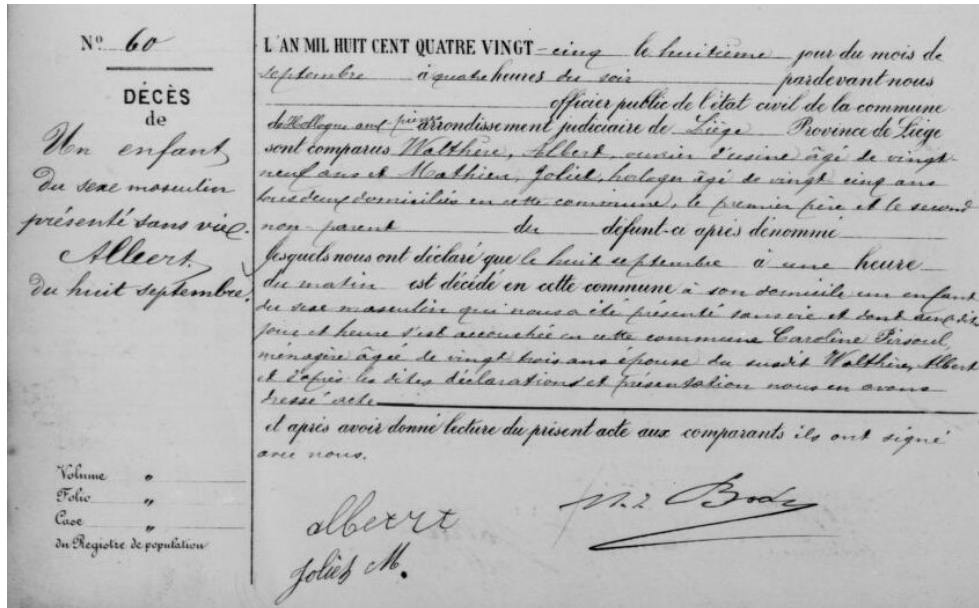 Nº 60
DÉCÈS
de
Un enfant
du sexe masculin
présenté sans vie.
Albert.
du huit septembre.
Volume "
Folio "
Case "
du Registre de population
L'AN MIL HUIT CENT QUATRE VINGT-cinq le huitième jour du mois de
septembre à quatre heures du soir pardevant nous
officier public de l'état civil de la commune
de Hollogne aux pierres arrondissement judiciaire de Liège Province de Liège
sont comparus Walthère, Albert, ouvrier d'usine âgé de vingt
neuf ans et Mathieu, Joliet, horloger âgé de vingt cinq ans
tous deux domiciliés en cette commune, le premier père et le second
non parent du défunt-ci après dénommé
lesquels nous ont déclaré que le huit septembre à une heure
du matin est décédé en cette commune à son domicile un enfant
du sexe masculin qui nous a été présenté sans vie et dont aux dits
jour et heure s'est accouchée en cette commune Caroline Pirsoul,
ménagère âgée de vingt trois ans épouse du susdit Walthère, Albert
et d'après les dites déclarations et présentation nous en avons
dressé acte
et après avoir donné lecture du présent acte aux comparants ils ont signé
avec nous.
Albert
Joliet M.